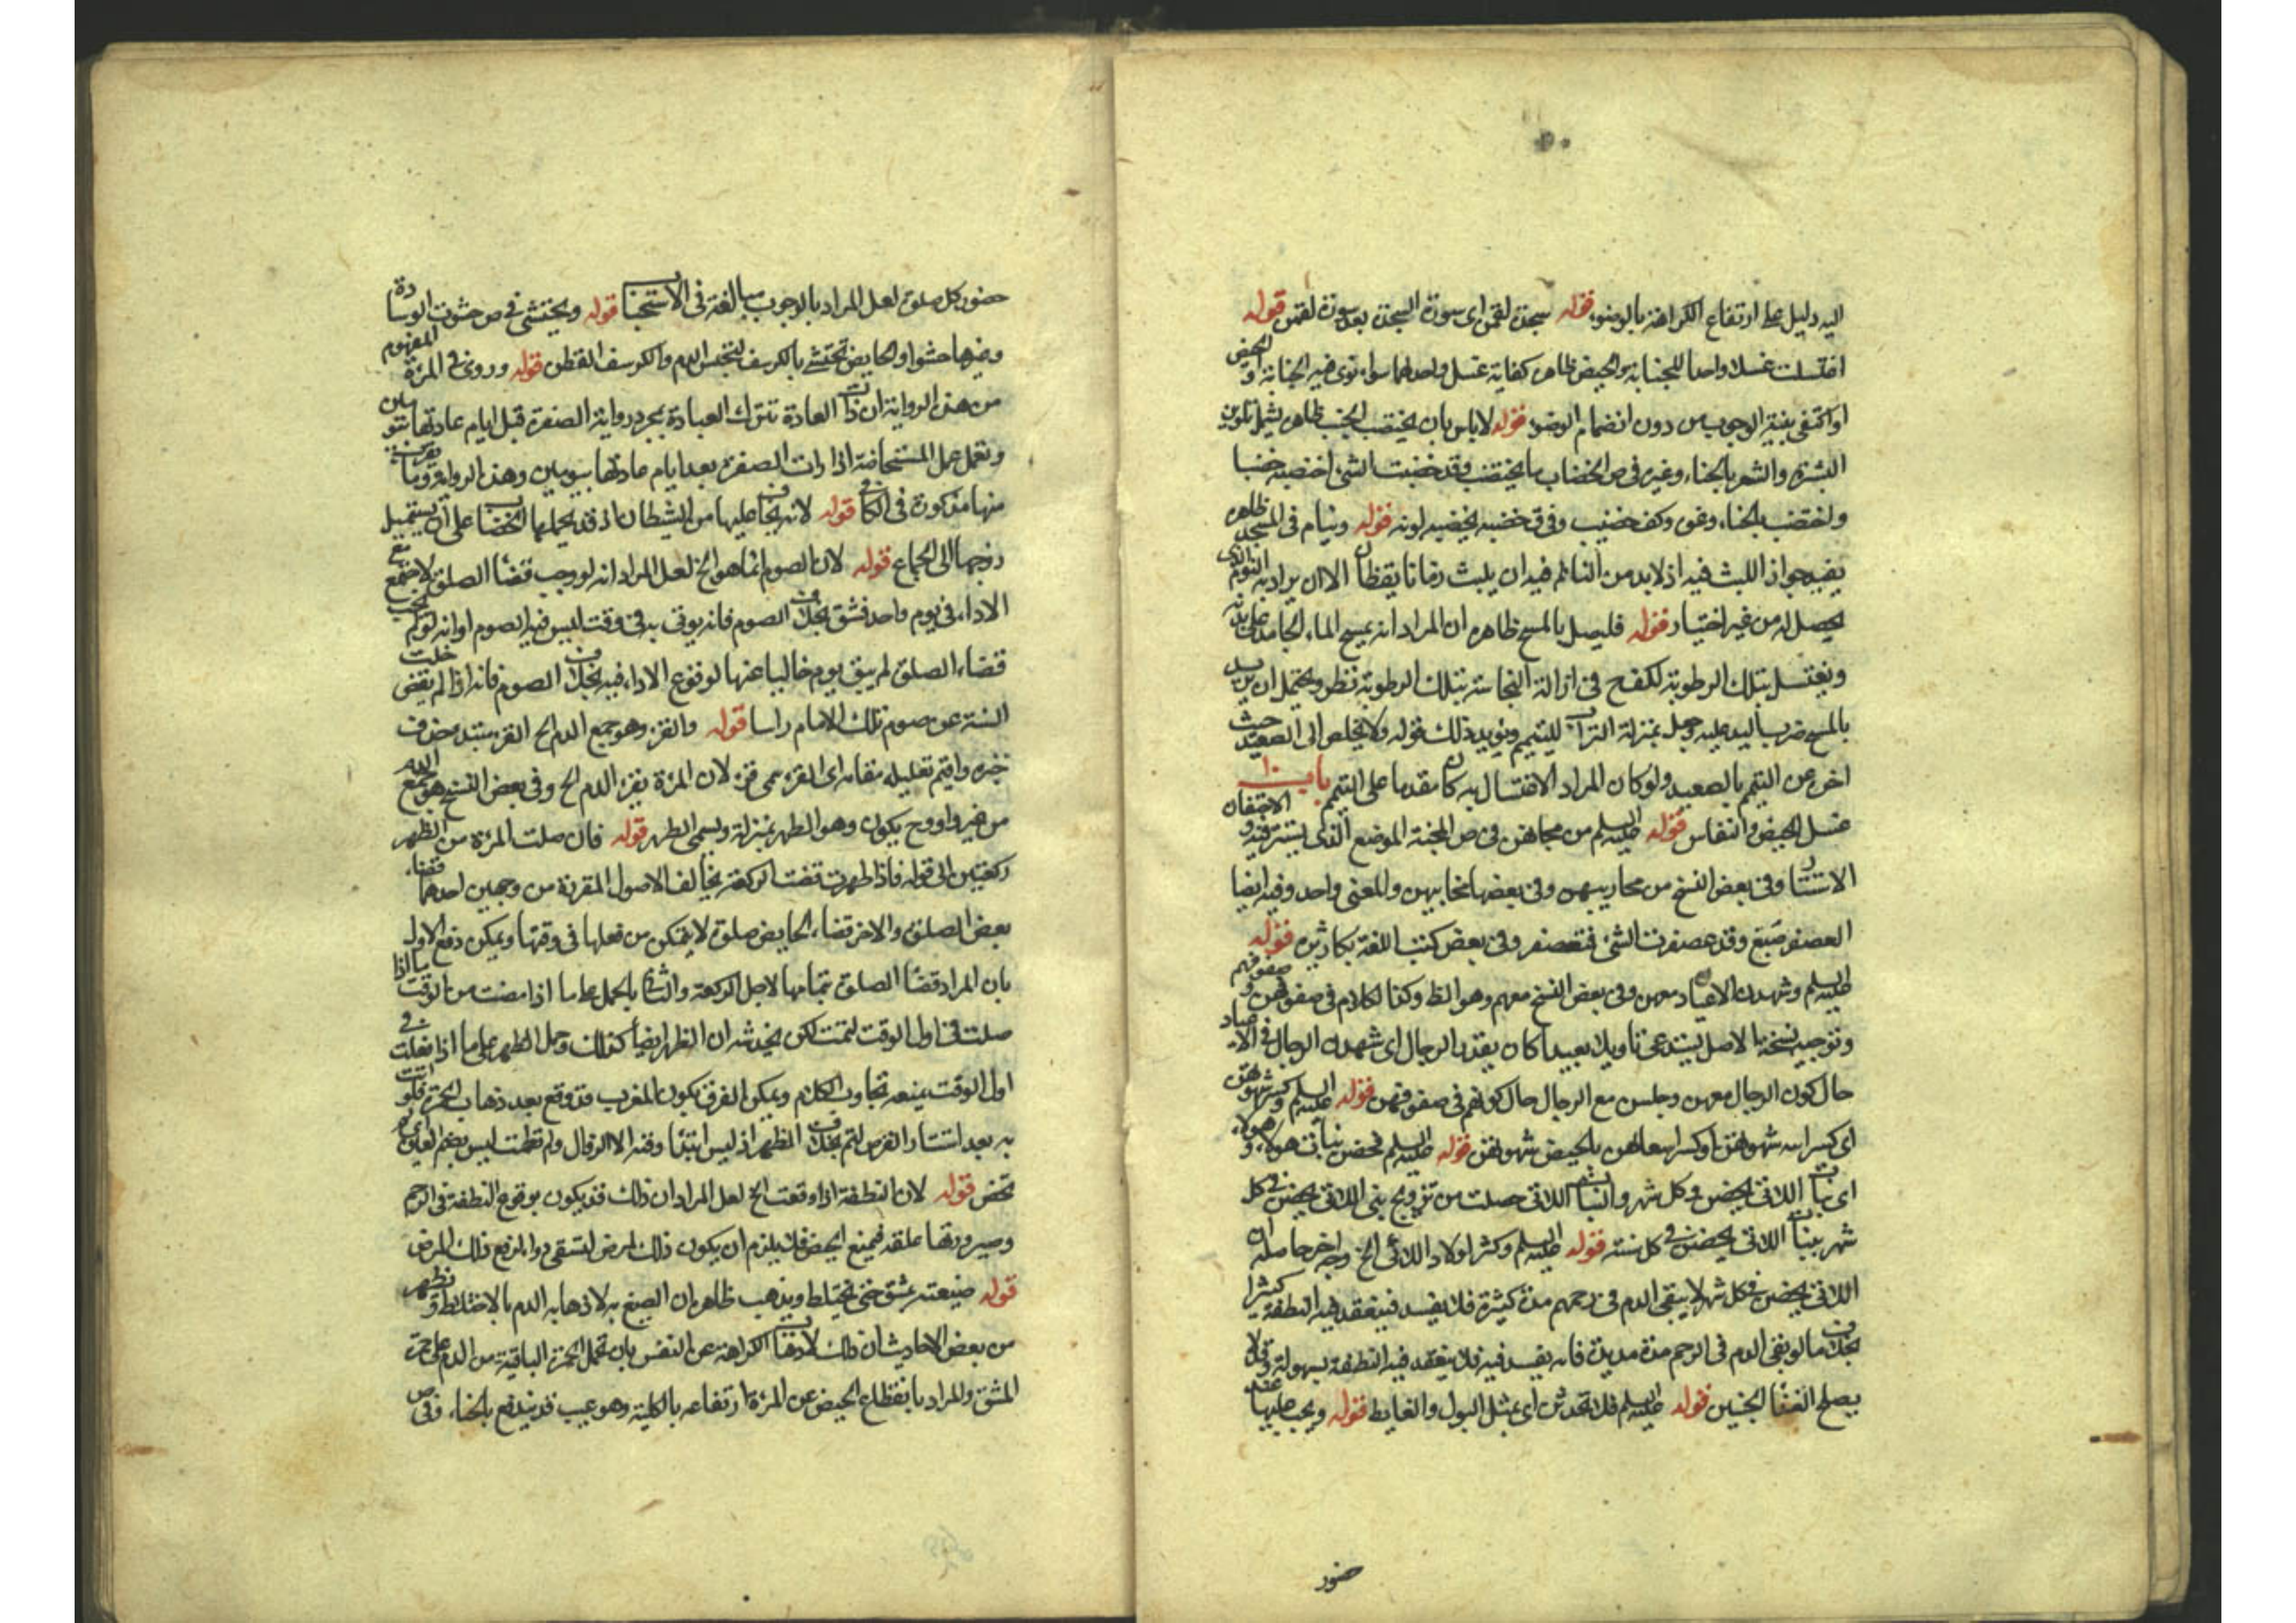 اليه دليل على ارتفاع الكراهة بالوضوء قوله سجدة لقمن اى سورة السجدة بعد سورة لقمن قوله
اغتسلت غسلا واحدا للجنابة والحيض ظاهره كفاية غسل واحد لهما سواء نوى فيه الجنابة او الحيض
او اكتفى بنية الوجوب من دون انضمام الوضوء قوله لا باس بان يختضب الجنب ظاهره يشمل تلوين
البشرة والشعر بالحناء وغيره فى ص الخضاب ما يختضب به وقد خضبت الشئ اخضبه خضبا
واختضب بالحناء ونحوه وكف خضيب وفى ق خضبه يخضبه لونه قوله وينام فى المسجد ظاهره
يفيد جواز اللبث فيه اذ لابد من النائم فيه ان يلبث زمانا يقظان الا ان يراد به النوم الذى
يحصل له من غير اختيار قوله فليصل بالمسح ظاهره ان المراد انه يمسح الماء الجامد على بدنه
ويغتسل بتلك الرطوبة لكنه فى ازالة النجاسة بتلك الرطوبة نظر ويحتمل ان يريد
بالمسح ضرب اليد عليه وجعله بمنزلة التراب للتيمم ويؤيد ذلك قوله ولا يخلص الى الصعيد حيث
اخر عن التيمم بالصعيد ولو كان المراد الاغتسال به كان مقدما على التيمم باب
غسل الحيض والنفاس قوله عليه السلم من مجانهن فى ص المجنة الموضع الذى يستتر فيه و
الاستتار وفى بعض النسخ من محاريبهن وفى بعضها مخابيهن والمعنى واحد وفيه ايضا
العصفر صبغ وقد عصفرت الشئ فتعصفر وفى بعض كتب اللغة قوله
عليه السلم وشهدن الاعياد معهن وفى بعض النسخ معهم وهو الظ وكذا الكلام فى صفوفهن و صفوفهم
وتوجيه نسخة الاصل يستدعى تاويلا بعيدا كان يقدر الرجال اى شهدن الرجال فى الاعياد
حال كون الرجال معهن وجلسن مع الرجال حال كونهم فى صفوفهن قوله عليه السلم وكسر شهوتهن
اى كسر الله شهوتهن او كسر ابتلاهن بالحيض شهوتهن قوله عليه السلم فحضن بنات هولاء و هولاء
اى بنات اللاتى يحضن فى كل شهر والبنات اللاتى حصلت من تزويج بنى اللاتى يحضن فى كل
شهر ببنات اللاتى يحضن فى كل سنة قوله عليه السلم وكثر اولاد اللاتى الخ وجه اخر حاصله ان
اللاتى يحضن فى كل شهر لا يبقى الدم فى رحمهم مدة كثيرة فلا يفسد فينعقد فيه النطفة كثيرا
بخلاف ما لو بقى الدم فى الرحم مدة مديدة فانه يفسد فيه فلا ينعقد فيه النطفة بسهولة وقد لا
يصلح الجنين قوله عليه السلم فلا تحدثن اى بمثل البول والغايط قوله ويجب عليها عند
حضور
حضور كل صلوة لعل المراد بالوجوب مبالغة فى الاستحباب قوله ويحتشى فى ص حشوت الوسادة
وغيرها حشوا والحايض تحتشى بالكرسف لتحبس الدم والكرسف القطن قوله وروى فى المرءة المفهوم
من هذه الرواية ان ذات العادة تترك العبادة بمجرد رواية الصفرة قبل ايام عادتها بيومين
وتعمل عمل المستحاضة اذا رات الصفرة بعد ايام عادتها بيومين وهذه الرواية وما يقرب
منها مذكورة فى الكافى قوله لانه يخاف عليها من الشيطان اذ قد يحملها الخضاب على ان يستميل
زوجها الى الجماع قوله لان الصوم انما هو الخ لعل المراد انه لو وجب قضاء الصلوة لاجتمع مع
الاداء فى يوم واحد فشق بخلاف الصوم فانه يوتى به فى وقت ليس فيه الصوم او انه لو لم يجب
قضاء الصلوة لم يبق يوم خاليا عنها لوقوع الاداء فيه بخلاف الصوم فانه اذا لم يقض خلت
السنة عن صوم تلك الايام راسا قوله والقرء وهو جمع الدم الخ القرء مبتدء محذوف
خبره واقيم تعليله مقامه اى القرء سمى قرء لان المرءة تقرء الدم الخ وفى بعض النسخ هو جمع الدم
من غير واو وح يكون وهو الطهر بمنزلة ويسمى الطهر قوله فان صلت المرءة من الظهر
ركعتين الى قوله فاذا طهرت قضت الركعة يخالف الاصول المقررة من وجهين احدهما قضاء
بعض الصلوة والاخر قضاء الحايض صلوة لا يتمكن من فعلها فى وقتها ويمكن دفع الاول
بان المراد قضاء الصلوة بتمامها لاجل الركعة والثانى بالحمل على ما اذا مضت من الوقت ما اذا
صلت فى اول الوقت لتمت لكن يخدشه ان الظهر ايضا كذلك وحمل الظهر على ما اذا فعلت فى
اول الوقت يمنعه تجاوب الكلام ويمكن الفرق بكون المغرب قد وقع بعد ذهاب الحمرة فلو اتت
به بعد استتار القرص لتم بخلاف الظهر اذ ليس ابتداء وقته الا الزوال
تحض قوله لان النطفة اذا وقعت الخ لعل المراد ان ذلك قد يكون بوقوع النطفة فى الرحم
وصيرورتها علقة فيمنع الحيض فلا يلزم ان يكون ذلك لمرض لتسقى دواء لدفع ذلك المرض
قوله صبغته بمشق حتى يختلط ويذهب ظاهره ان الصبغ به لا ذهابه الدم بالاختلاط و تظهر
من بعض الاحاديث ان ذلك لاذهاب الكراهة عن النفس بان تحمل الحمرة الباقية من الدم على حمرة
المشق والمراد بانقطاع الحيض عن المرءة ارتفاعه بالكلية وهو عيب قد يندفع بالحناء وفى ص